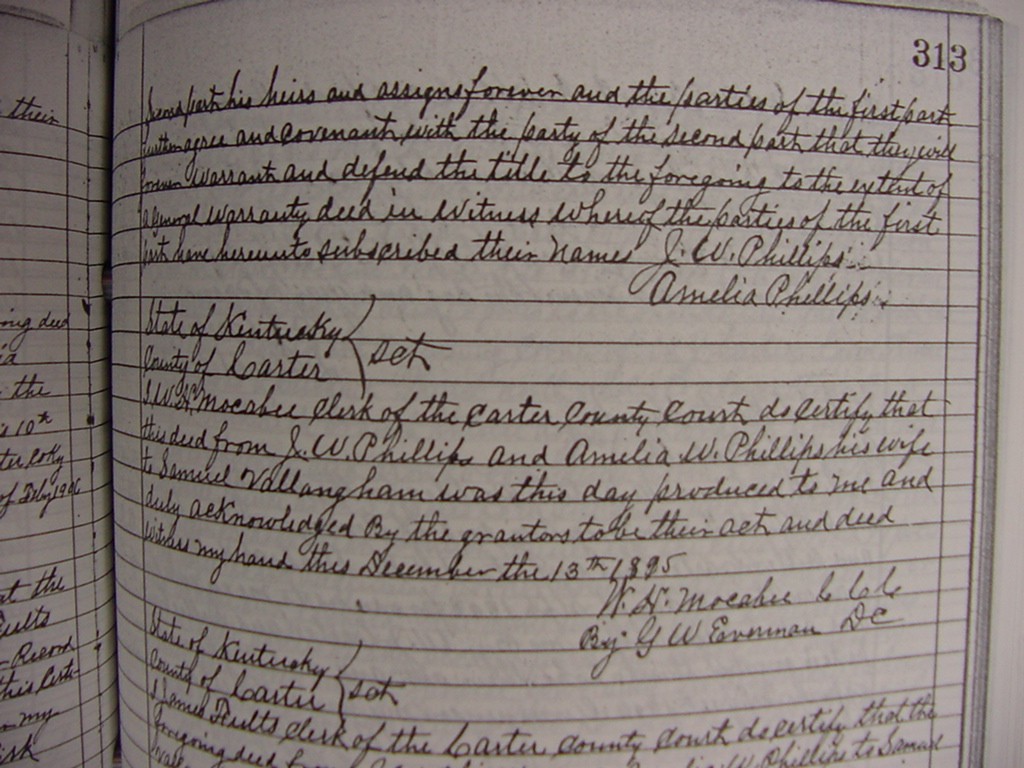 their
ing deed
the
s 10th
of Feby 1906
at the
Fults
Record
in my
313
Second part his heirs and assigns forever and the parties of the first part
further agree and covenant with the party of the second part that they will
forever warrant and defend the title to the foregoing to the extent of
a General warranty deed in Witness Whereof the parties of the first
part have hereunto subscribed their names J. W. Phillips
Amelia Phillips
State of Kentucky
County of Carter
sct
I W. H. Mocabee Clerk of the Carter County Court do certify that
this deed from J. W. Phillips and Amelia W. Phillips his wife
to Samuel Vallangham was this day produced to me and
duly acknowledged By the grantors to be their act and deed
witness my hand this December the 13th 1895
W. H. Mocabee C C C
By G W Everman DC
State of Kentucky
County of Carter
sct
I James Fults Clerk of the Carter County Court do certify that the
foregoing deed from Phillips to Samuel